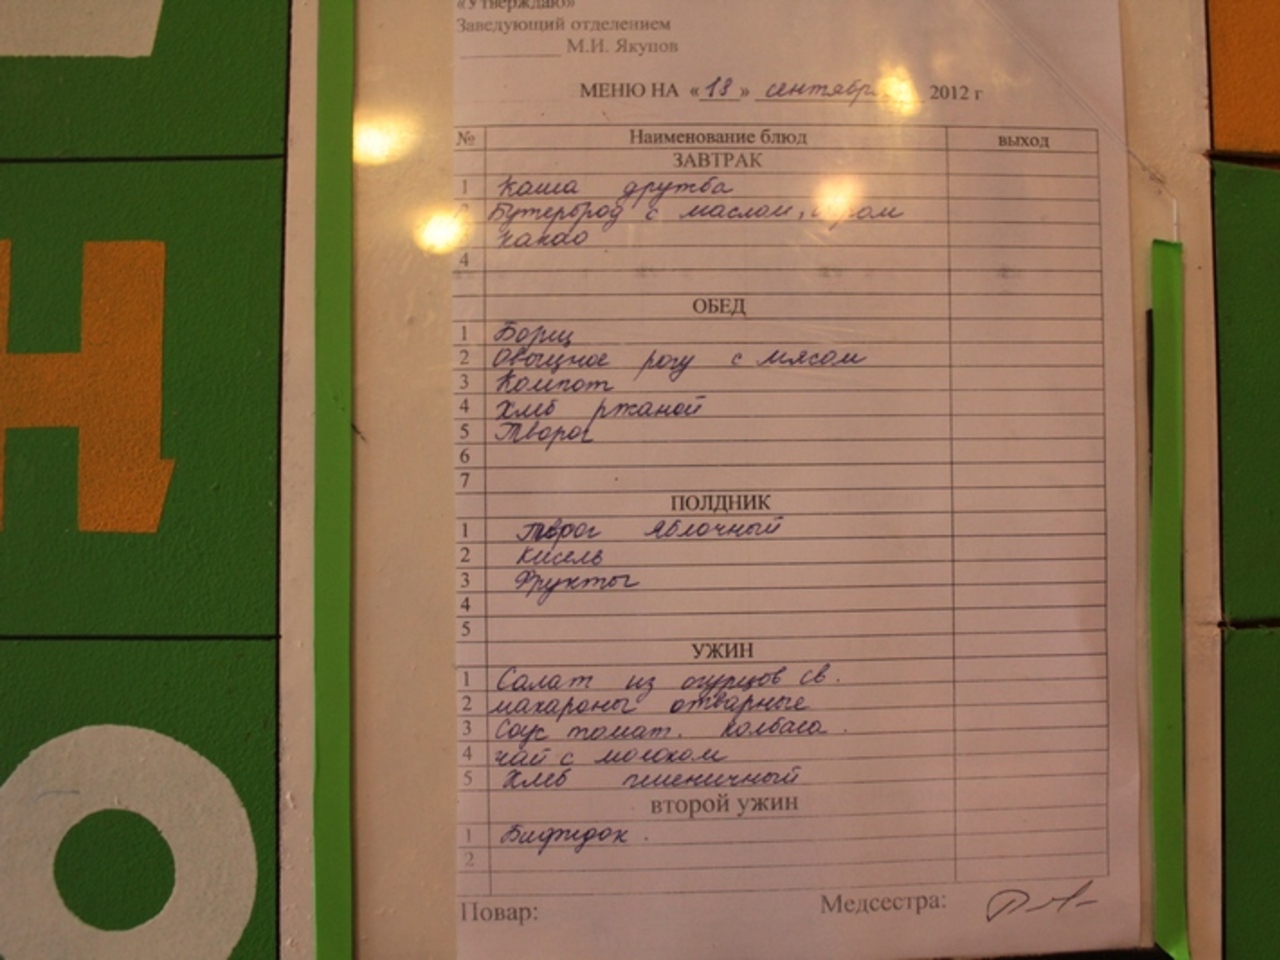 «Утверждаю»
Заведующий отделением
М.И. Якупов
МЕНЮ НА «18» сентября 2012 г
№ Наименование блюд выход
ЗАВТРАК
1 Каша дружба
Бутерброд с маслом, сыром
какао
4
ОБЕД
1 Борщ
2 Овощное рогу с мясом
3 Компот
4 Хлеб ржаной
5 Творог
6
7
ПОЛДНИК
1 яблочный
2 Кисель
3 Фрукты
4
5
УЖИН
1 Салат из огурцов св.
2 макароны отварные
3 Соус томат. колбаса.
4 чай с молоком
5 Хлеб пшеничный
второй ужин
1 Бифидок.
2
Повар: Медсестра:
Н
О